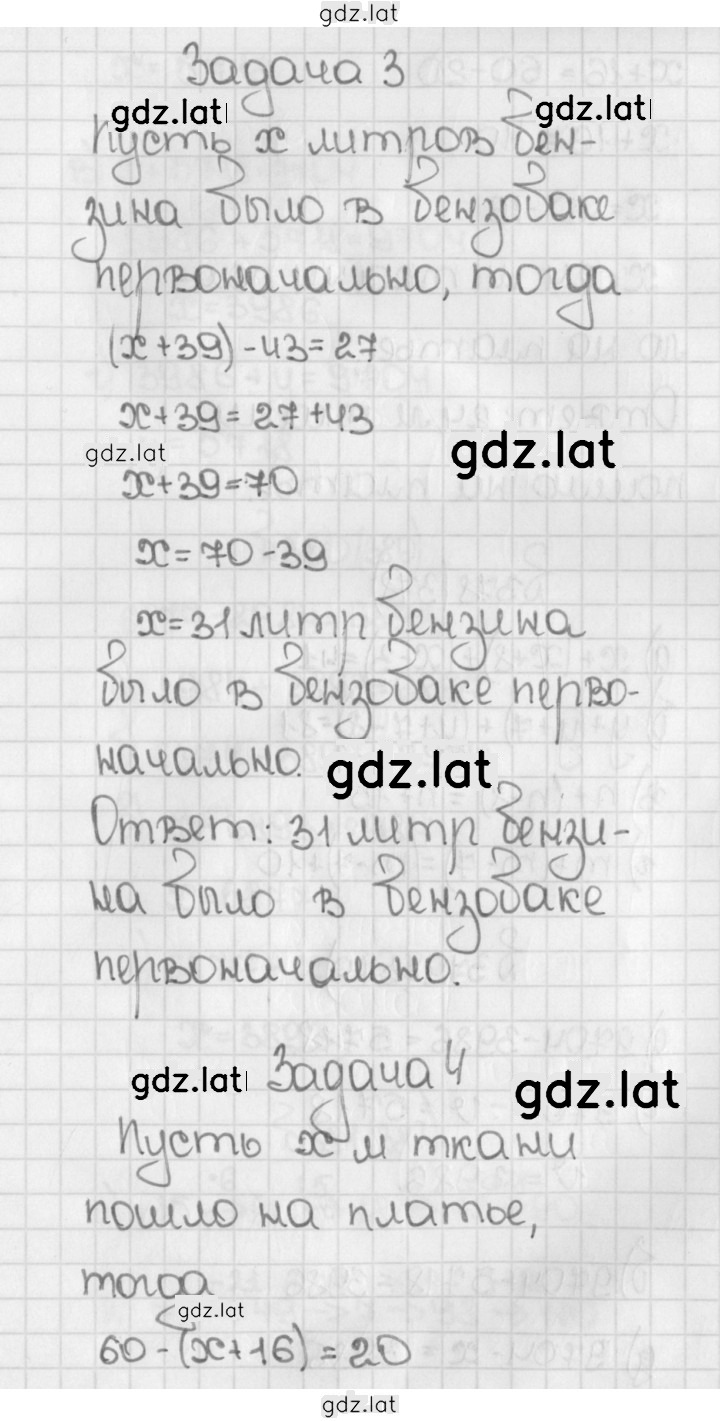 gdz.lat
Задача 3
gdz.lat gdz.lat
Пусть x литров бен-
зина было в бензобаке
первоначально, тогда
(x+39)-43=27
x+39=27+43
gdz.lat gdz.lat
x+39=70
x=70-39
x=31 литр бензина
было в бензобаке перво-
начально.
gdz.lat
Ответ: 31 литр бензи-
на было в бензобаке
первоначально.
gdz.lat Задача 4
gdz.lat
Пусть x м ткани
пошло на платье,
тогда
gdz.lat
60-(x+16)=20
gdz.lat